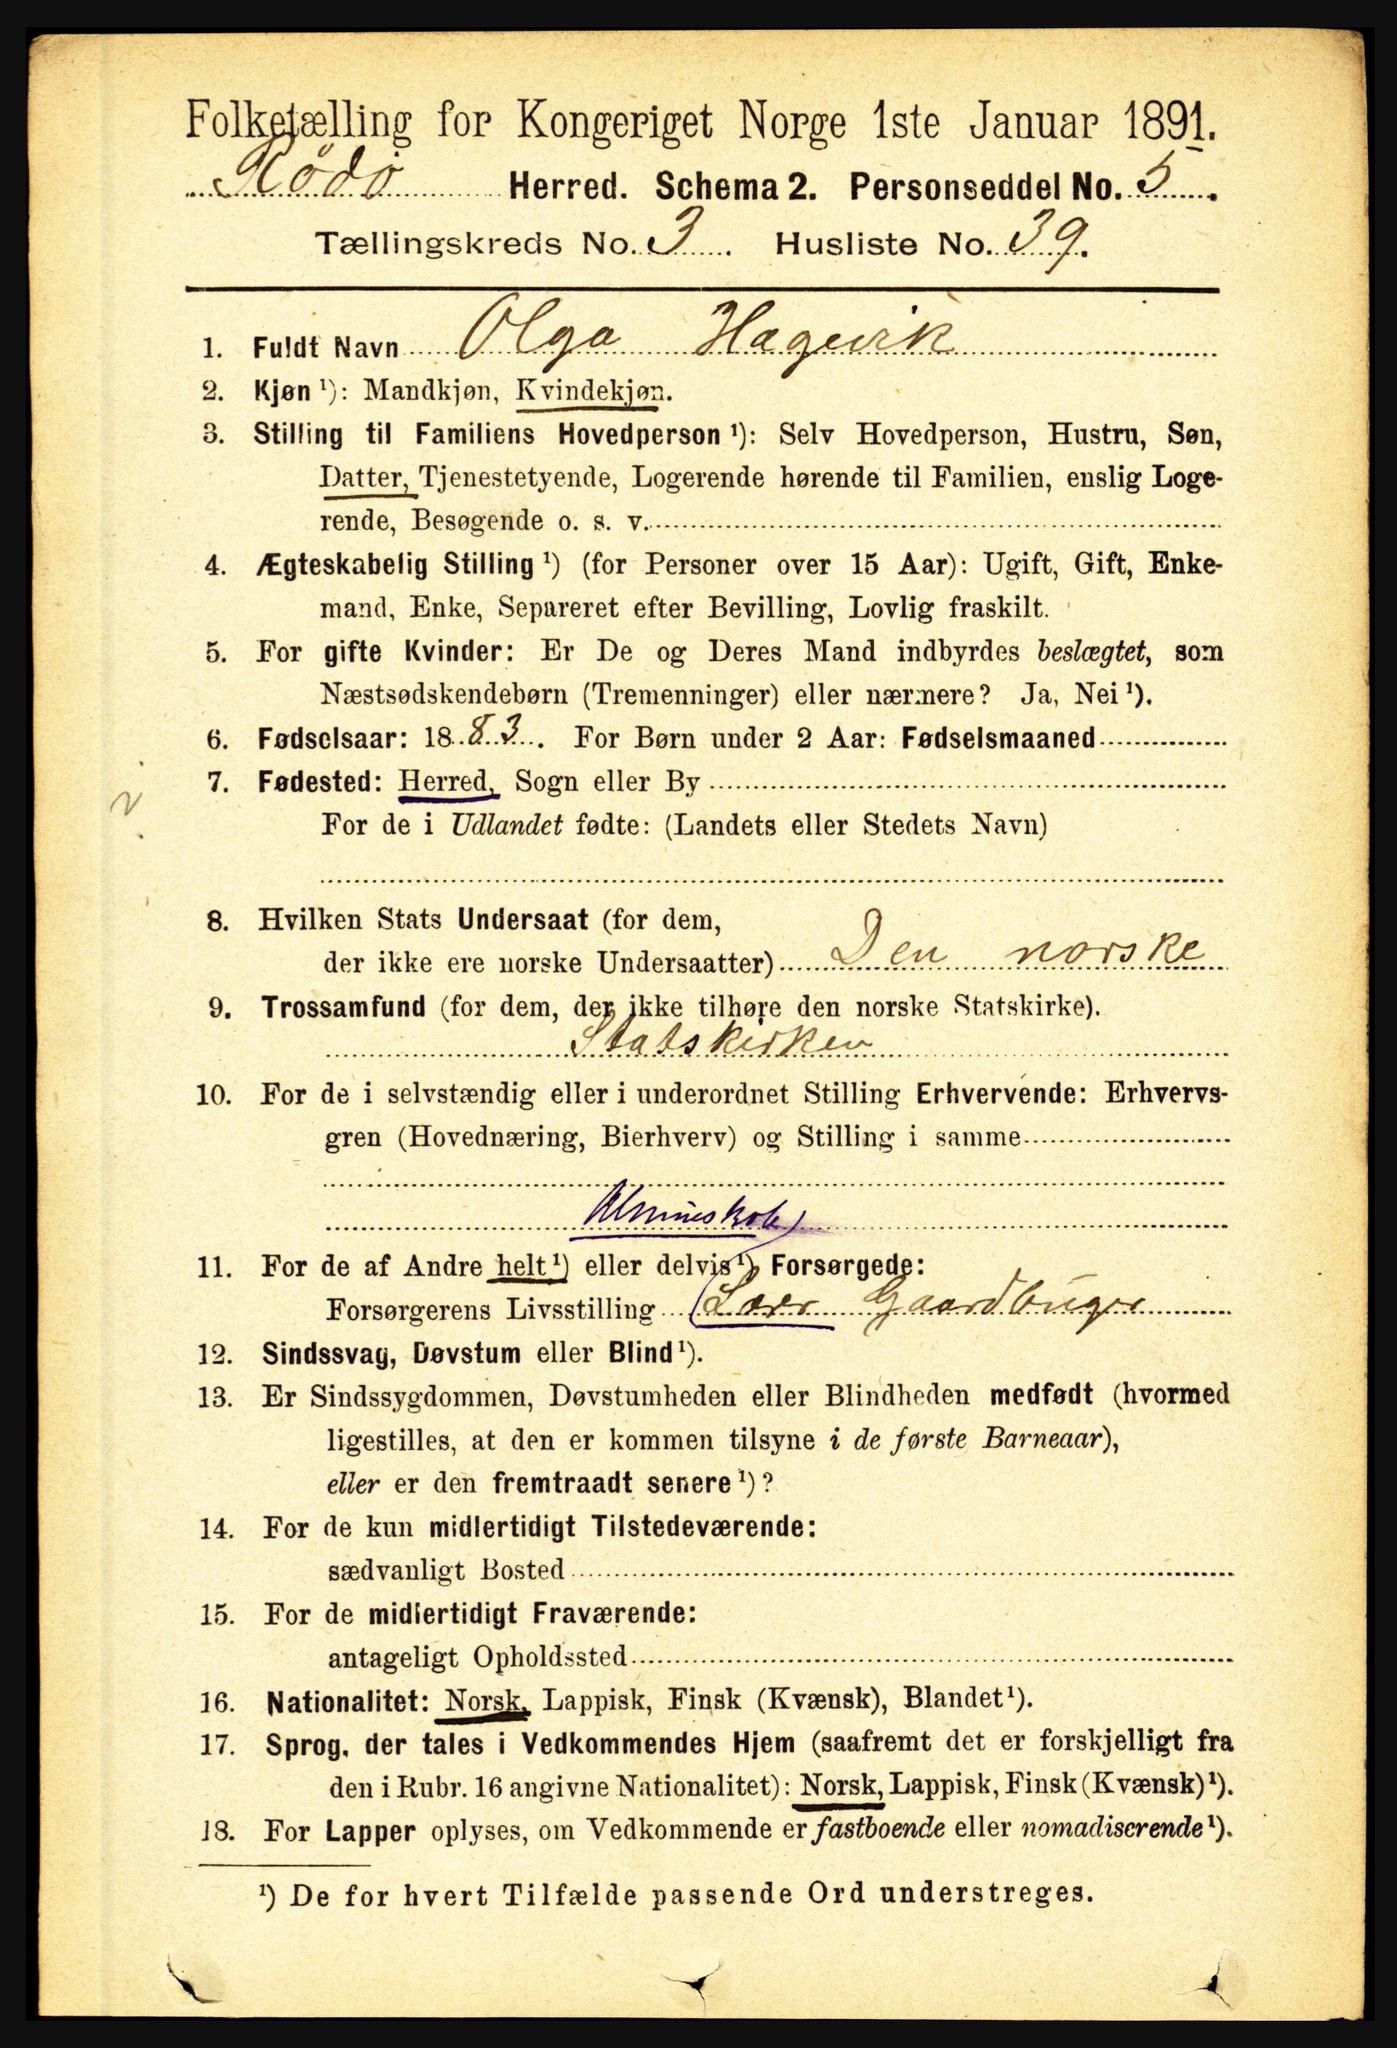 Folketælling for Kongeriget Norge 1ste Januar 1891.
Rödö Herred. Schema 2. Personseddel No. 5.
Tællingskreds No. 3. Husliste No. 39.
1. Fuldt Navn Olga Hagevik
2. Kjøn ¹): Mandkjøn, Kvindekjøn.
3. Stilling til Familiens Hovedperson ¹): Selv Hovedperson, Hustru, Søn,
Datter, Tjenestetyende, Logerende hørende til Familien, enslig Loge-
rende, Besøgende o. s. v.
4. Ægteskabelig Stilling ¹) (for Personer over 15 Aar): Ugift, Gift, Enke-
mand, Enke, Separeret efter Bevilling, Lovlig fraskilt.
5. For gifte Kvinder: Er De og Deres Mand indbyrdes beslægtet, som
Næstsødskendebørn (Tremenninger) eller nærmere? Ja, Nei ¹).
6. Fødselsaar: 1883. For Børn under 2 Aar: Fødselsmaaned
7. Fødested: Herred, Sogn eller By
For de i Udlandet fødte: (Landets eller Stedets Navn)
8. Hvilken Stats Undersaat (for dem,
der ikke ere norske Undersaatter) Den norske
9. Trossamfund (for dem, der ikke tilhøre den norske Statskirke).
Statskirken
10. For de i selvstændig eller i underordnet Stilling Erhvervende: Erhvervs-
gren (Hovednæring, Bierhverv) og Stilling i samme
Almueskole
11. For de af Andre helt ¹) eller delvis ¹) Forsørgede:
Forsørgerens Livsstilling Lærer Gaardbruger
12. Sindssvag, Døvstum eller Blind ¹).
13. Er Sindssygdommen, Døvstumheden eller Blindheden medfødt (hvormed
ligestilles, at den er kommen tilsyne i de første Barneaar),
eller er den fremtraadt senere ¹)?
14. For de kun midlertidigt Tilstedeværende:
sædvanligt Bosted
15. For de midlertidigt Fraværende:
antageligt Opholdssted
16. Nationalitet: Norsk, Lappisk, Finsk (Kvænsk), Blandet ¹).
17. Sprog, der tales i Vedkommendes Hjem (saafremt det er forskjelligt fra
den i Rubr. 16 angivne Nationalitet): Norsk, Lappisk, Finsk (Kvænsk) ¹).
18. For Lapper oplyses, om Vedkommende er fastboende eller nomadiserende ¹).
¹) De for hvert Tilfælde passende Ord understreges.